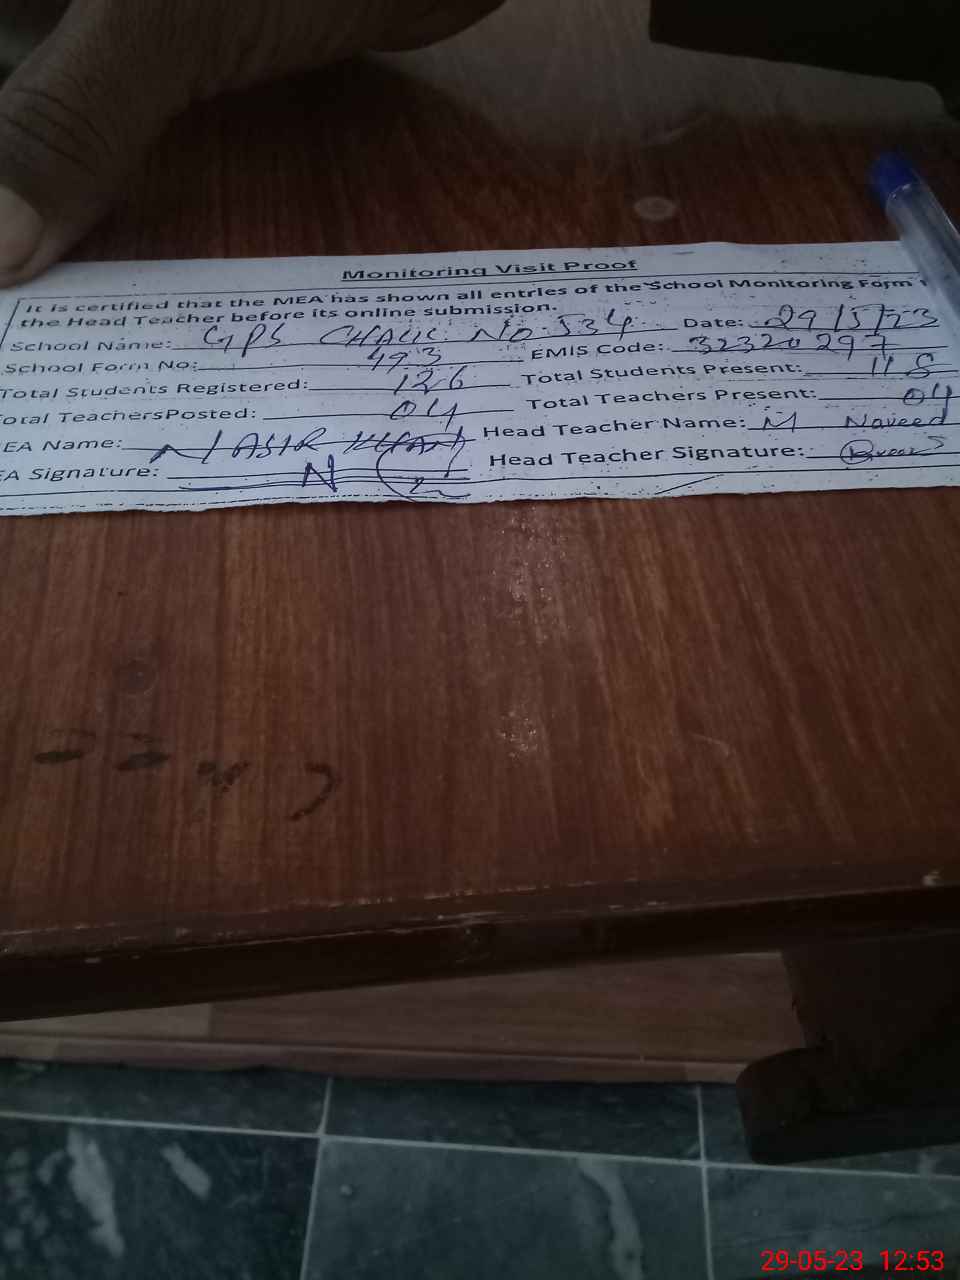 Monitoring Visit Proof
It is certified that the MEA has shown all entries of the School Monitoring Form
the Head Teacher before its online submission.
School Name: GPS CHACK NO. 534 Date: 29/5/23
School Form No: 493 EMIS Code: 32320297
Total Students Registered: 126 Total Students Present: 118
Total TeachersPosted: 04 Total Teachers Present: 04
EA Name: NASIR KHAN Head Teacher Name: M Naveed
EA Signature: Head Teacher Signature:
29-05-23 12:53